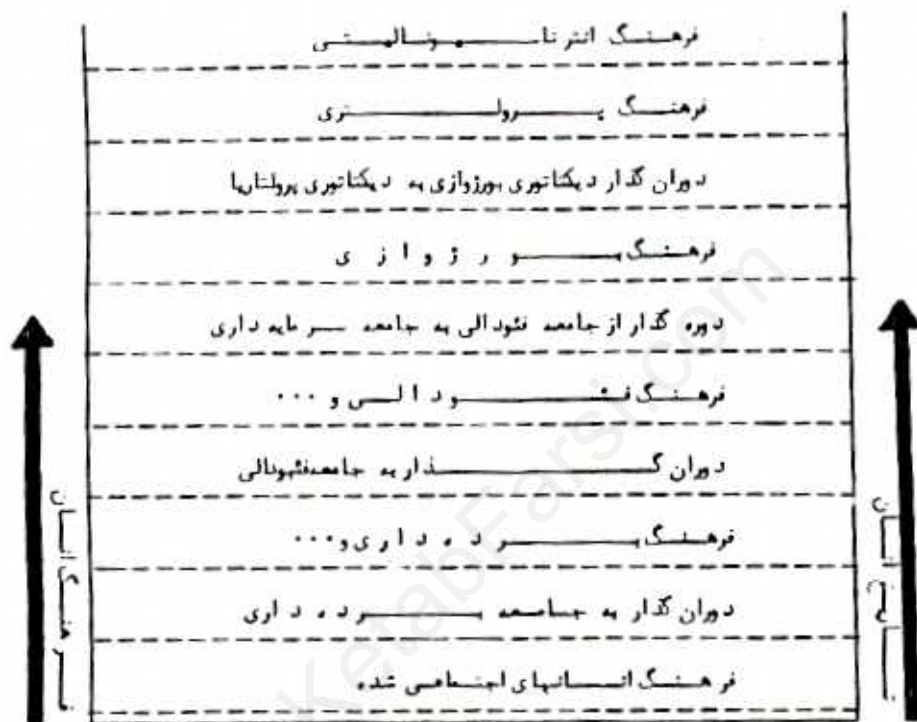 فرهنگ انترناسیونالیستی
فرهنگ پرولتری
دوران گذار دیکتاتوری بورژوازی به دیکتاتوری پرولتاریا
فرهنگ بورژوازی
دوره گذار از جامعه فئودالی به جامعه سرمایه داری
فرهنگ فئودالی و ...
دوران گذار به جامعه فئودالی
فرهنگ برده داری و ...
دوران گذار به جامعه برده داری
فرهنگ انسانهای اجتماعی شده
فرهنگ انسان
تاریخ انسان
KetabFarsi.com